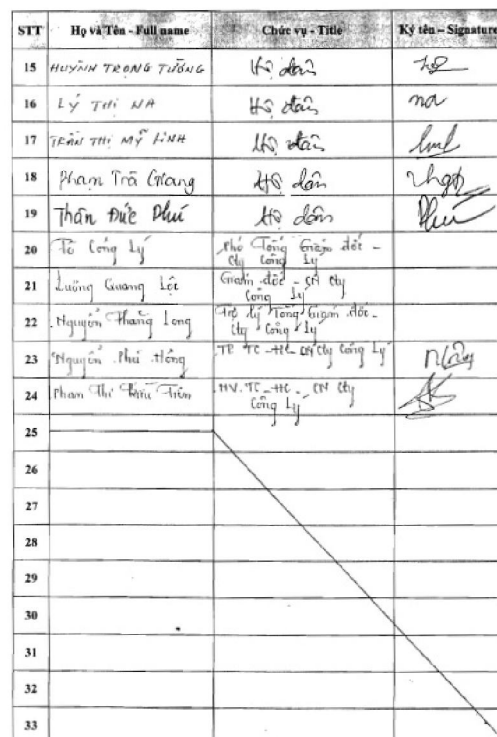 STT Họ và Tên - Full name Chức vụ - Title Ký tên – Signature
15 HUỲNH TRỌNG TƯỜNG Hộ dân
16 LÝ THỊ NA Hộ dân na
17 TRẦN THỊ MỸ LINH Hộ dân
18 Phạm Trà Giang Hộ dân
19 Thân Đức Phú Hộ dân Phú
20 Công Lý Phó Tổng Giám đốc -
Cty Công Lý
21 Lương Quang Lộc Giám đốc - CN Cty
Công Lý
22 Nguyễn Thăng Long Trợ lý Tổng Giám đốc -
Cty Công Lý
23 Nguyễn Phú Hồng TP. TC - HC - CN Cty Công Lý
24 Phạm Thị Tiên NV. TC - HC - CN Cty
Công Lý
25
26
27
28
29
30
31
32
33